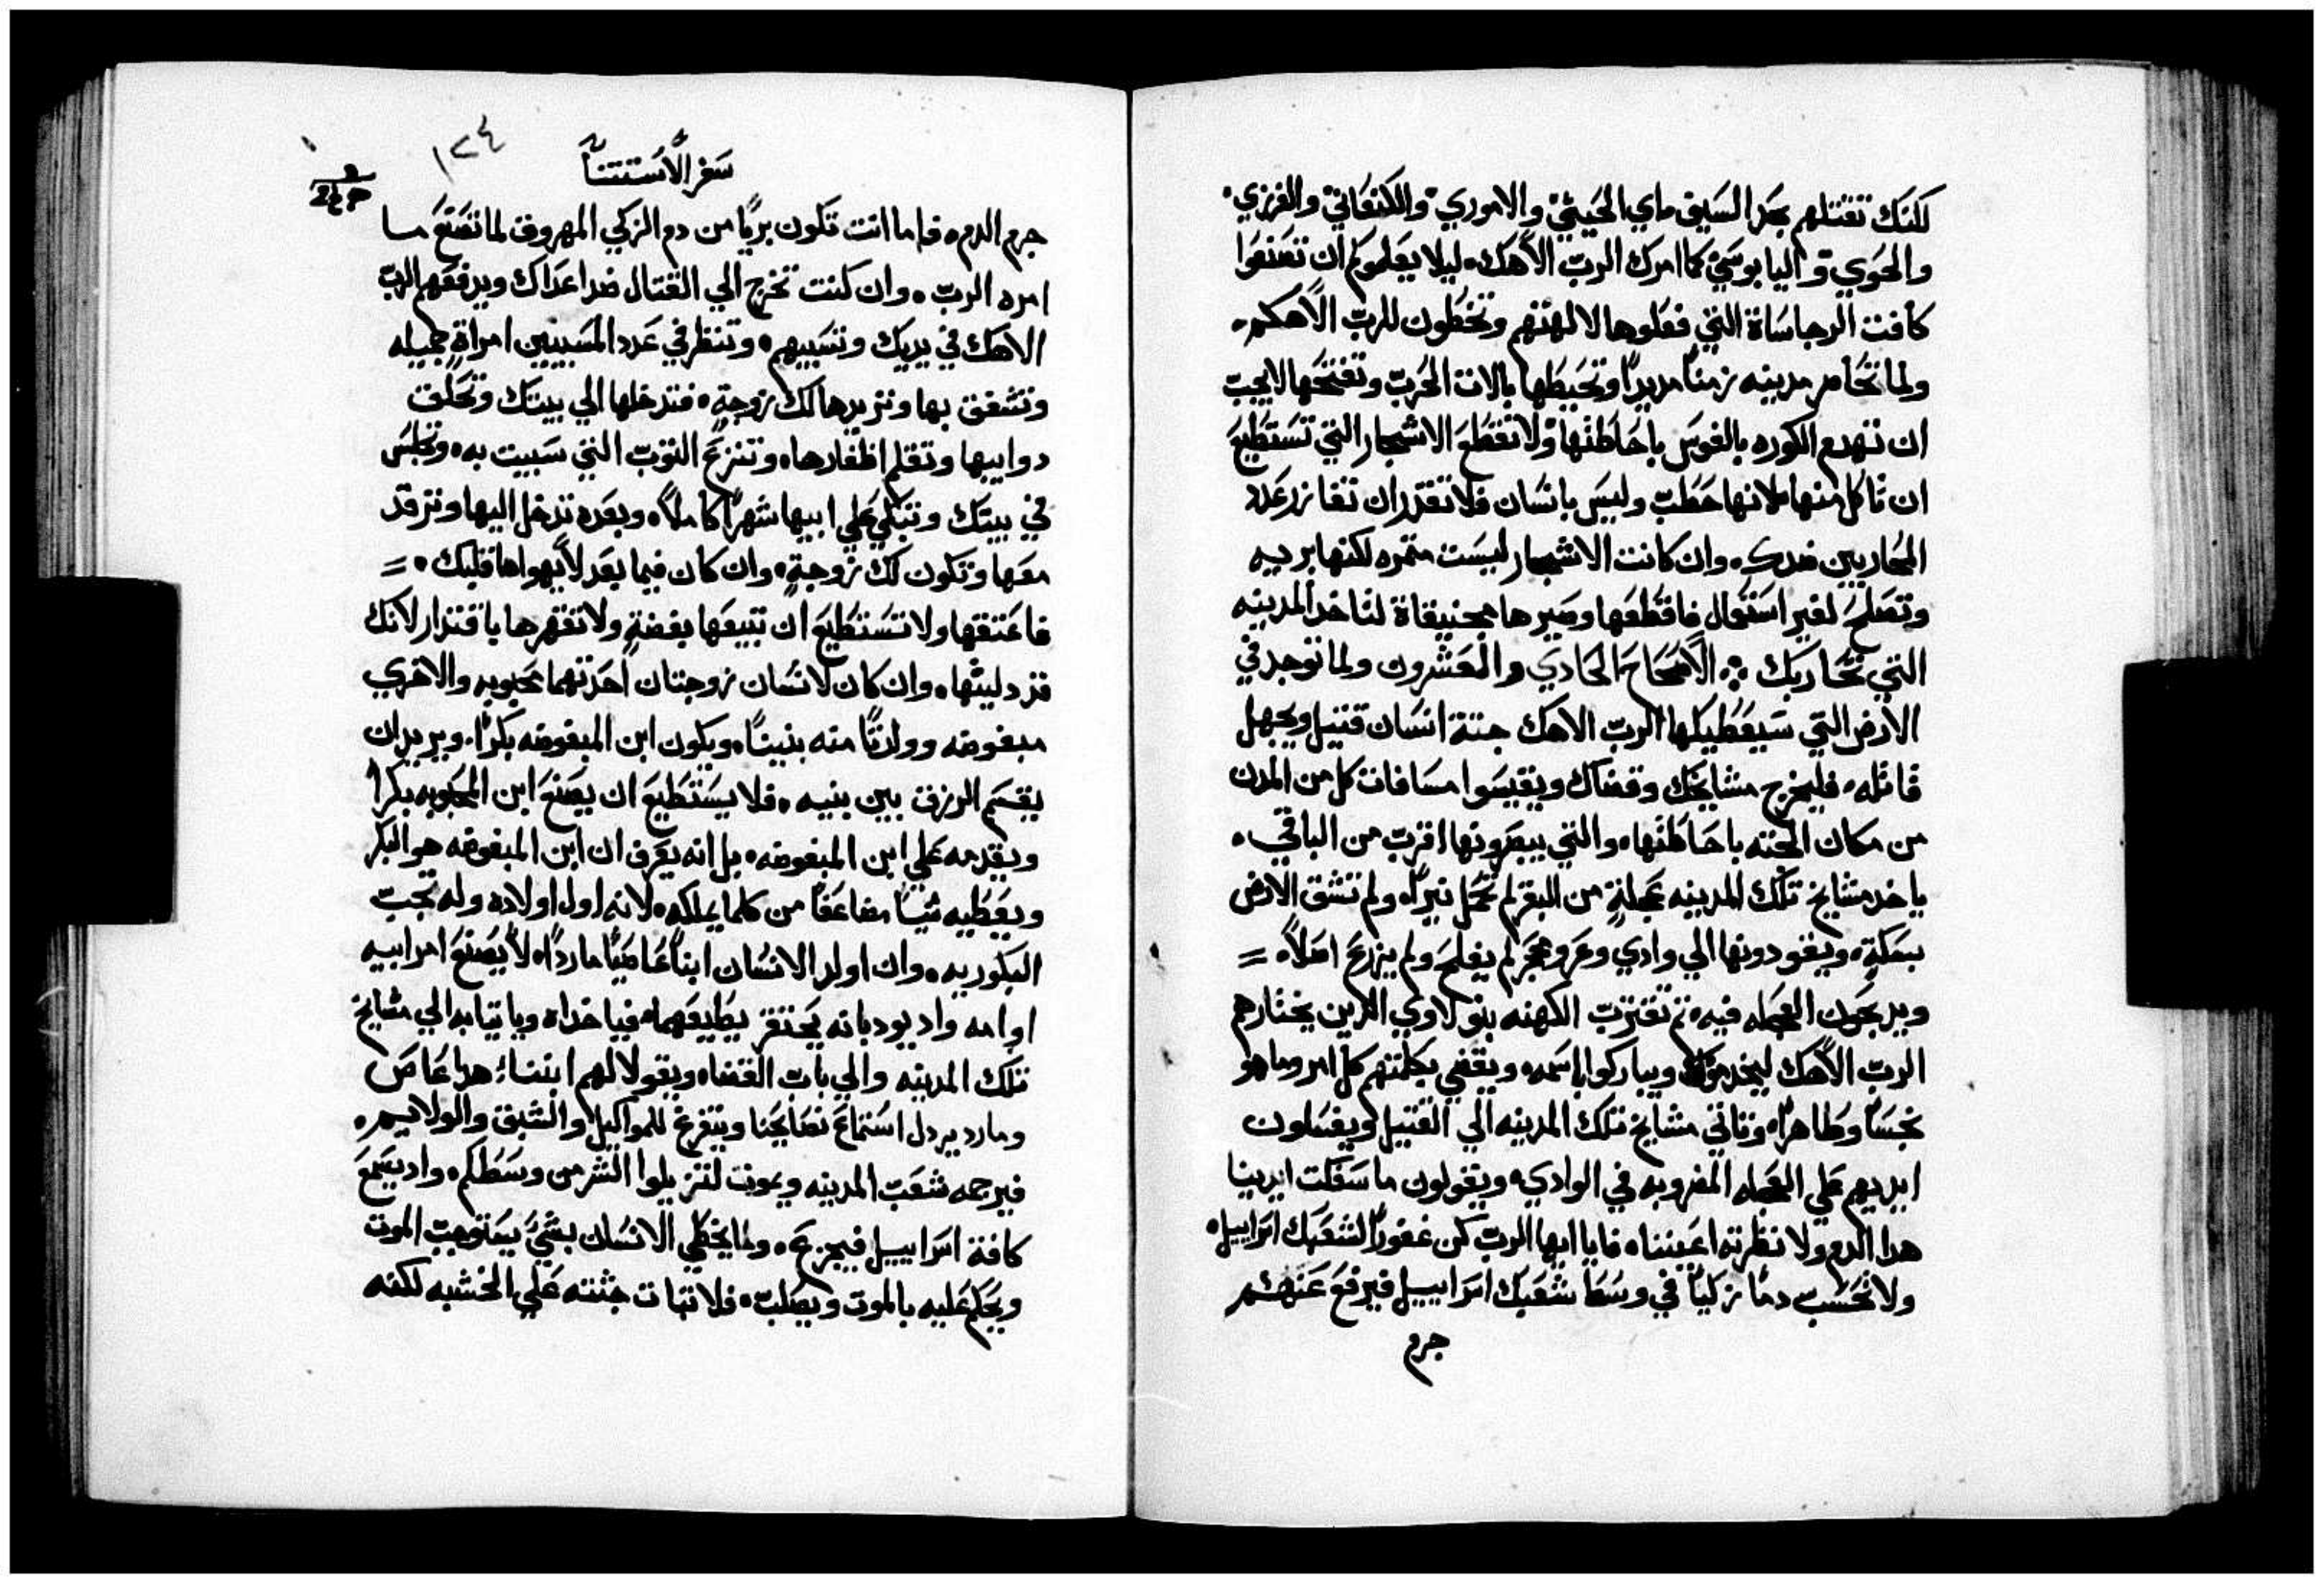 لكنك تقتلهم بحد السيف اي الحيثي والاموري والكنعاني والفرزي.
والحوي واليابوسي كما امرك الرب الاهك. ليلا يعلموكم ان تصنعوا
كافت الرجاساة التي فعلوها لالهتهم وتخطون للرب الاهكم.
ولما تحاصر مدينه زمنًا مديدًا وتحيطها بالات الحرب وتفتحها لايجب
ان تهدم الكوره بالفوس باحاطتها ولا تقطع الاشجار التي تستطيع
ان تاكل منها لانها حطب وليس بانسان فلا تقدر ان تفازز عدد
المحاربين ضدك. وان كانت الاشجار ليست مثمره لكنها بريه
وتصلح لغير استعمال فاقطعها وصيرها مجنيقاة لتاخد المدينه
التي تحاربك ❖ الاصحاح الحادي والعشرون ولما توجد في
الارض التي سيعطيكها الرب الاهك جتة انسان قتيل ويجهل
قاتله. فليخرج مشايخك وقضاك ويقيسوا مسافات كل من المدن
من مكان الجته باحاطتها. والتي يبصرونها اقرب من الباقي.
ياخد مشايخ تلك المدينه عجلةٍ من البقر لم تحمل نيرًا. ولم تشق الارض
بسكةٍ. ويقودونها الي وادي وعر وحجر لم يفلح ولم يزرع اصلاً. =
ويدبحون العجله فيه. تم تقترب الكهنه بنو لاوي الدين يختارهم
الرب الاهك ليخدموك ويباركوا باسمه. ويقضي بكلمتهم كل امر وما هو
نجسًا وطاهرًا. وتاتي مشايخ تلك المدينه الي القتيل ويغسلون
ايديهم علي العجله المضروبه في الوادي. ويقولون ما سفكت ايدينا
هدا الدم ولا نظرته اعيننا. فايا ايها الرب كن غفورًا لشعبك اسراييل.
ولا تحسب دمًا زكيًا في وسط شعبك اسراييل فيرفع عنهم
جرم
سفر الاستثنا
١٢٤
جرم الدم. فاما انت تكون بريًا من دم الزكي المهروق لما تصنع ما
امره الرب. وان كنت تخرج الي القتال ضد اعداك ويدفعهم الرب
الاهك في يديك وتسبيهم. وتنظر في عدد المسبيين امراةٍ جميله
وتشفق بها وتريدها لك زوجةٍ. فتدخلها الي بيتك وتحلق
دواييها وتقلم اظفارها. وتنزع التوب التي سبيت به. وتجلس
في بيتك وتبكي علي ابيها شهرًا كاملاً. وبعده تدخل اليها وترقد
معها وتكون لك زوجةٍ. وان كان فيما بعد لا يهواها قلبك. =
فاعتقها ولا تستطيع ان تبيعها بفضةٍ ولا تقهرها باقتدار لانك
قد دليتها. وان كان لانسان زوجتان احدتهما محبوبه والاخري
مبغوضه وولدتًا منه بنينًا. ويكون ابن المبغوضه بكرًا. ويريد ان
يقسم الرزق بين بنيه. فلا يستطيع ان يصنع ابن المحبوبه بكرًا
ويقدمه علي ابن المبغوضه. بل انه يعرف ان ابن المبغوضه هو البكر
ويعطيه شيًا مضاعفًا من كلما يملكه. لانه اول اولاده وله تجب
البكوريه. وان اولد الانسان ابنًا عاصيًا ماردًا. لا يصنع امر ابيه
او امه واد يودبانه يحتقر يطيعهما. فياخداه وياتيا به الي مشايخ
تلك المدينه والي باب القضا. ويقولا لهم ابننا هدا عاص
ومارد يردل استماع نصايحنا ويتفرغ للمواكيل والشبق والولايم.
فيرجمه شعب المدينه ويموت لتزيلوا الشر من وسطكم. واد يسمع
كافة اسراييل فيجزع. ولما يخطي الانسان بشي يستوجب الموت
ويحكم عليه بالموت ويصلب. فلا تبات جتته علي الخشبه لكنه